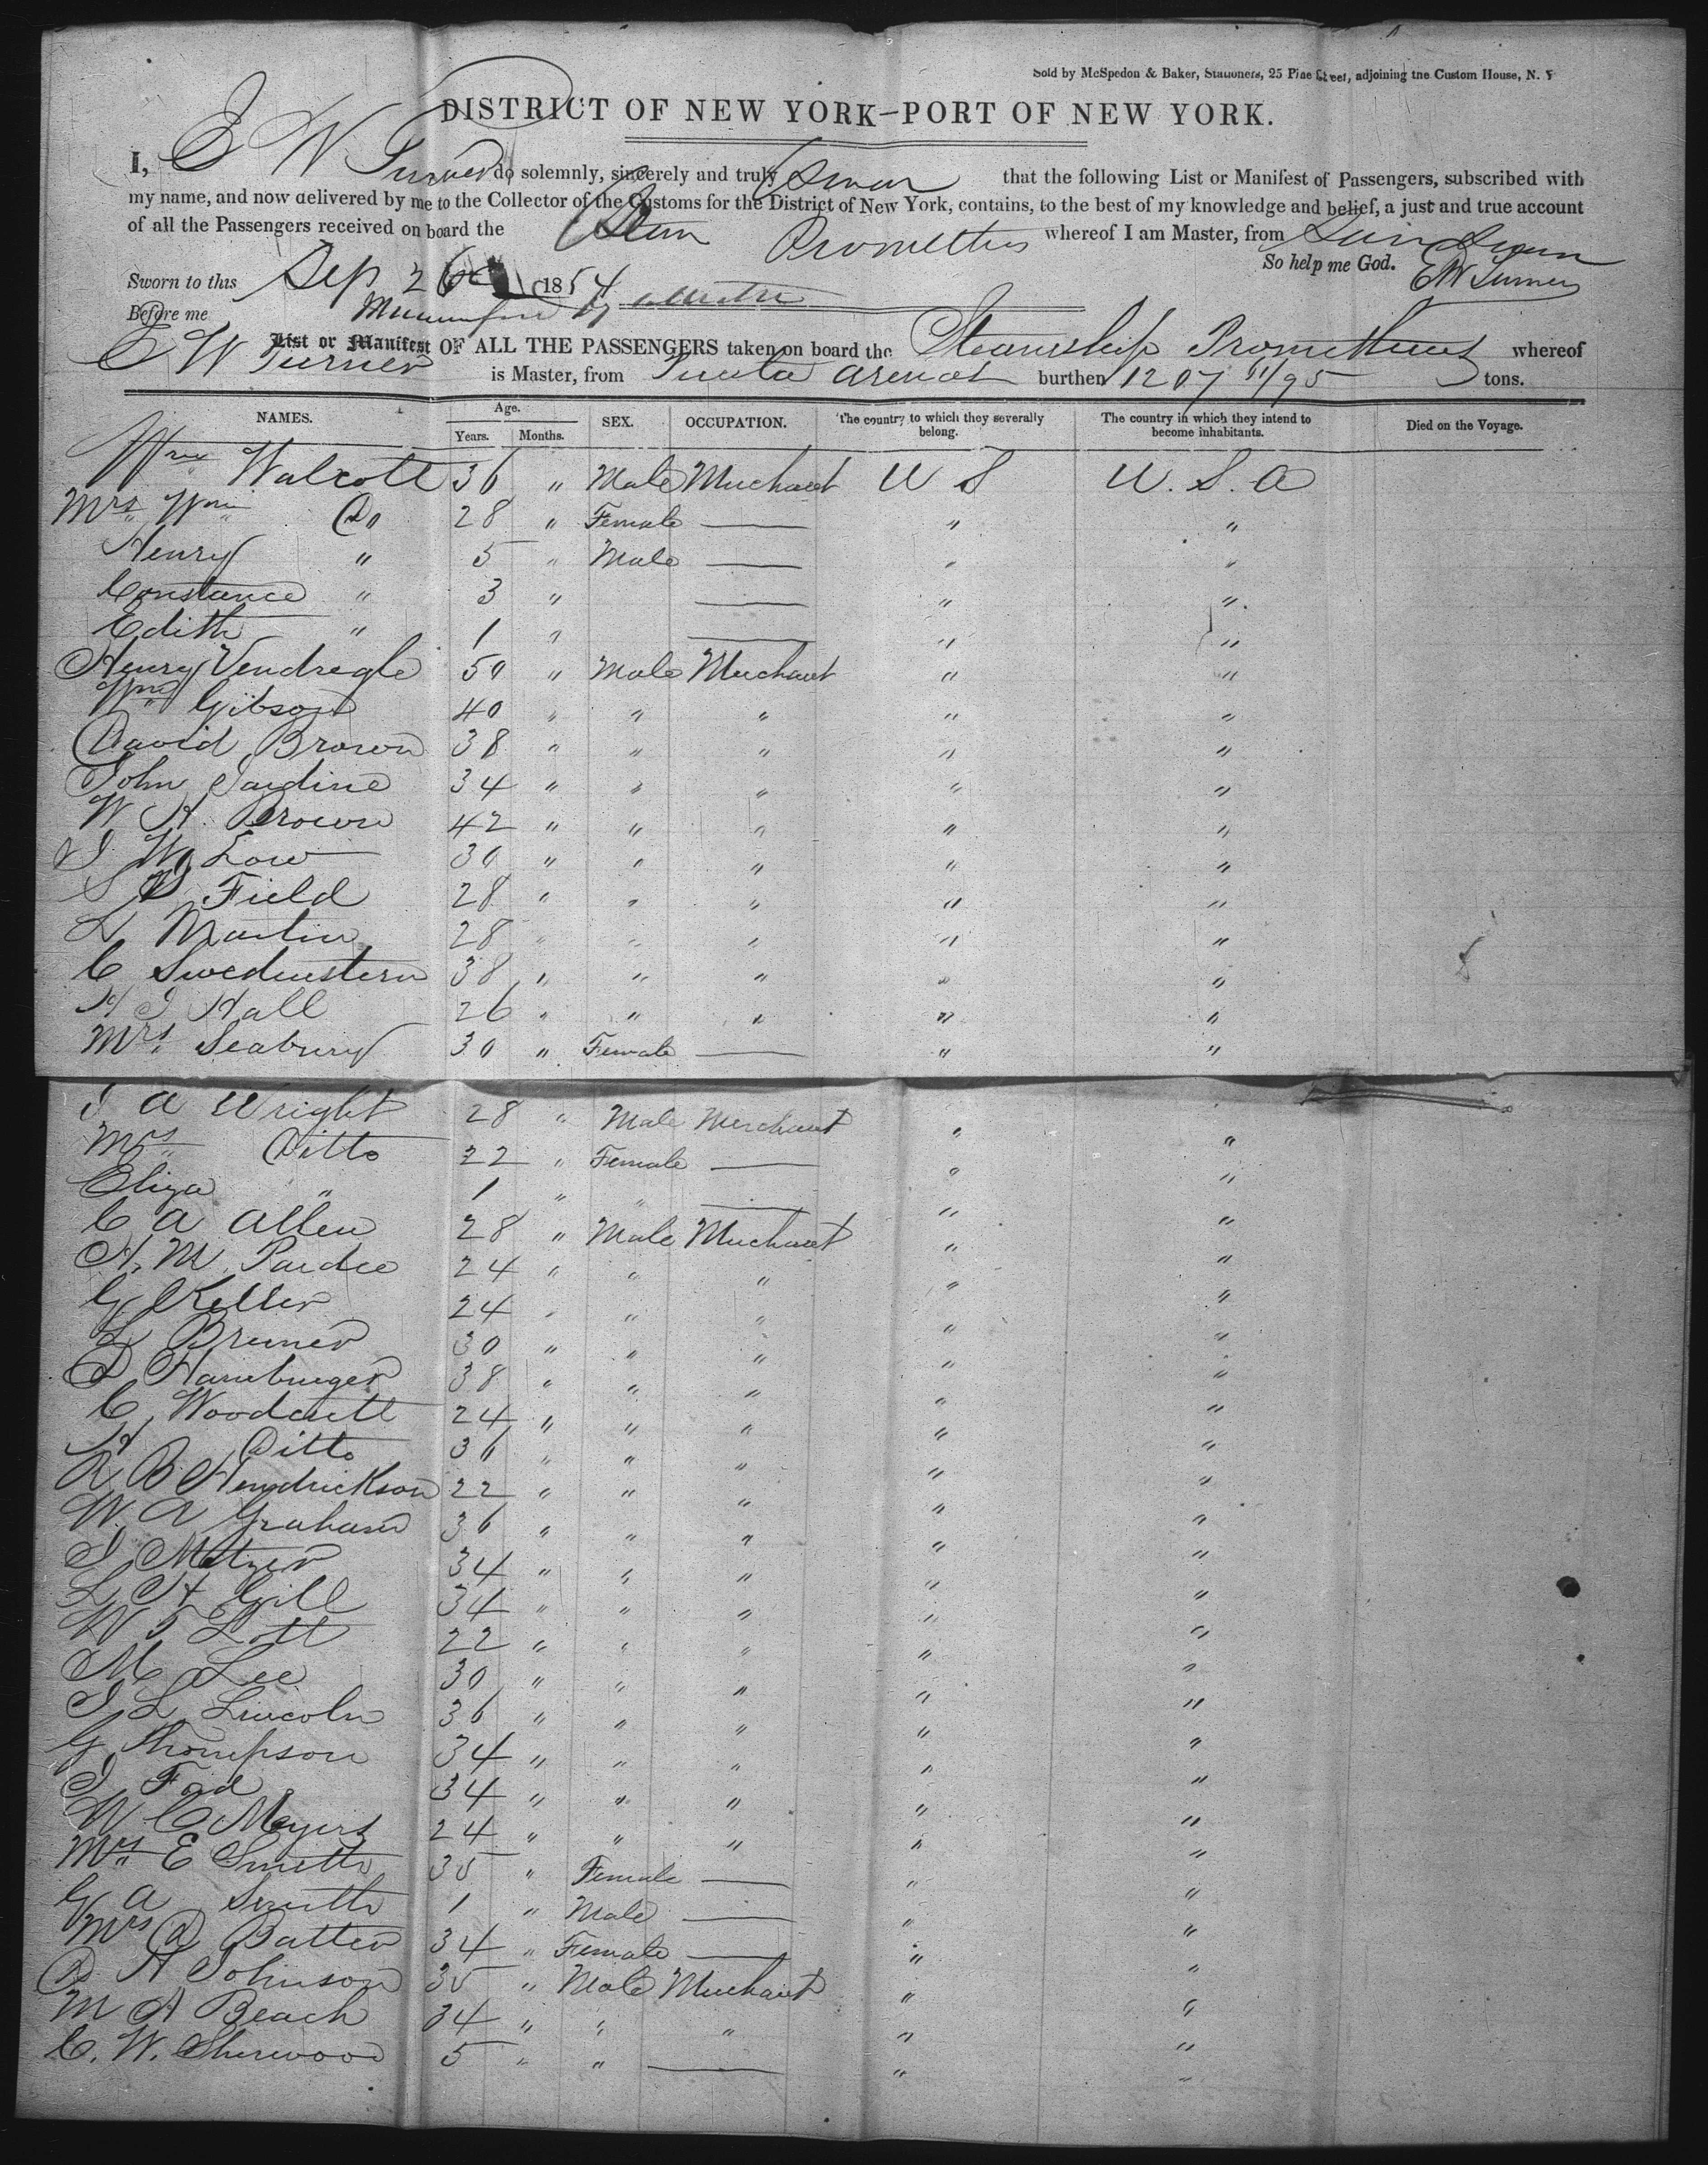 Sold by McSpedon & Baker, Stationers, 25 Pine Street, adjoining the Custom House, N. Y
DISTRICT OF NEW YORK—PORT OF NEW YORK.
I, E W Turner do solemnly, sincerely and truly Swear that the following List or Manifest of Passengers, subscribed with
my name, and now delivered by me to the Collector of the Customs for the District of New York, contains, to the best of my knowledge and belief, a just and true account
of all the Passengers received on board the Prometheus whereof I am Master, from San Juan
So help me God. E W Turner
Sworn to this Sep 26 1854
Before me
List or Manifest OF ALL THE PASSENGERS taken on board the Steamship Prometheus whereof
E W Turner is Master, from Punta Arenas burthen 1207 11/95 tons.
NAMES. Age. Years. Months. SEX. OCCUPATION. The country to which they severally belong. The country in which they intend to become inhabitants. Died on the Voyage.
Wm Walcott 36 " Male Merchant U S U. S. A
Mrs Wm Do 28 " Female — " "
Henry " 5 " Male — " "
Constance " 3 " — " "
Edith " 1 " — " "
Henry Vendregle 50 " Male Merchant " "
Wm Gibson 40 " " " " "
David Brown 38 " " " " "
John Jardine 34 " " " " "
W H Brown 42 " " " " "
J W Low 30 " " " " "
S Field 28 " " " " "
L Martin 28 " " " " "
C Swedenstern 38 " " " " "
H J Hall 26 " " " " "
Mrs Seabury 30 " Female — " "
J A Wright 28 " Male Merchant " "
Mrs Ditto 22 " Female — " "
Eliza " 1 " " — " "
C A Allen 28 " Male Merchant " "
H. M. Pardee 24 " " " " "
G Keller 24 " " " " "
L Bremer 30 " " " " "
D Hamburger 38 " " " " "
C Woodcutt 24 " " " " "
H Ditto 36 " " " " "
R B Hendrickson 22 " " " " "
W. A Graham 36 " " " " "
J Metzer 34 " " " " "
L H Gill 34 " " " " "
W T Lott 22 " " " " "
M Lee 30 " " " " "
J L Lincoln 36 " " " " "
G Thompson 34 " " " " "
J Fod 34 " " " " "
W C Meyers 24 " " " " "
Mrs E Smith 35 " Female — " "
G A Smith 1 " Male — " "
Mrs D Batter 34 " Female — " "
D H Johnson 35 " Male Merchant " "
M A Beach 34 " " " " "
C. W. Sherwood 5 " " — " "